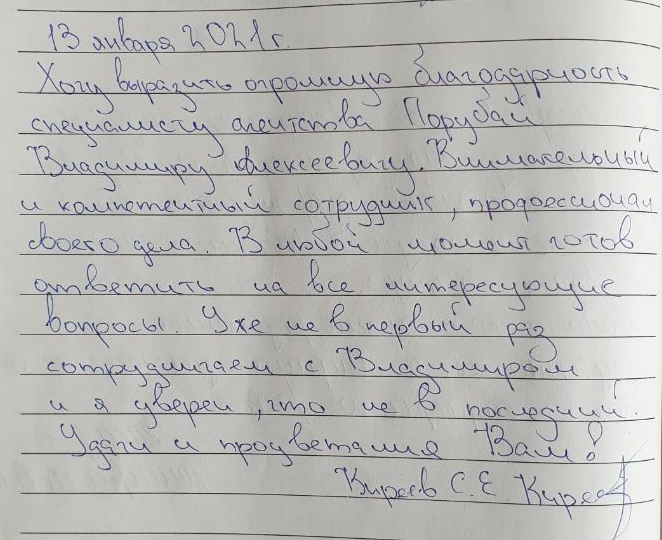 13 января 2021г.
Хочу выразить огромную благодарность
специалисту агентства Порубай
Владимиру Алексеевичу. Внимательный
и компетентный сотрудник, профессионал
своего дела. В любой момент готов
ответить на все интересующие
вопросы. Уже не в первый раз
сотрудничаем с Владимиром
и я уверен, что не в последний.
Удачи и процветания Вам!
Киреев С.Е Киреев